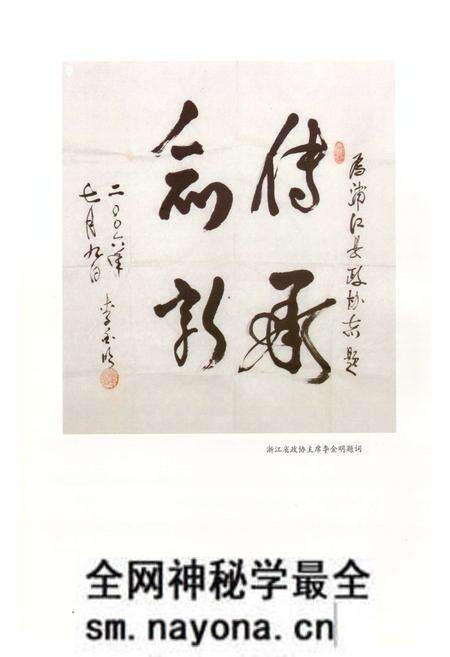 为浦江县政协志题
传承
创新
二〇〇六年
七月九日
李金明
浙江省政协主席李金明题词
全网神秘学最全
sm.nayona.cn